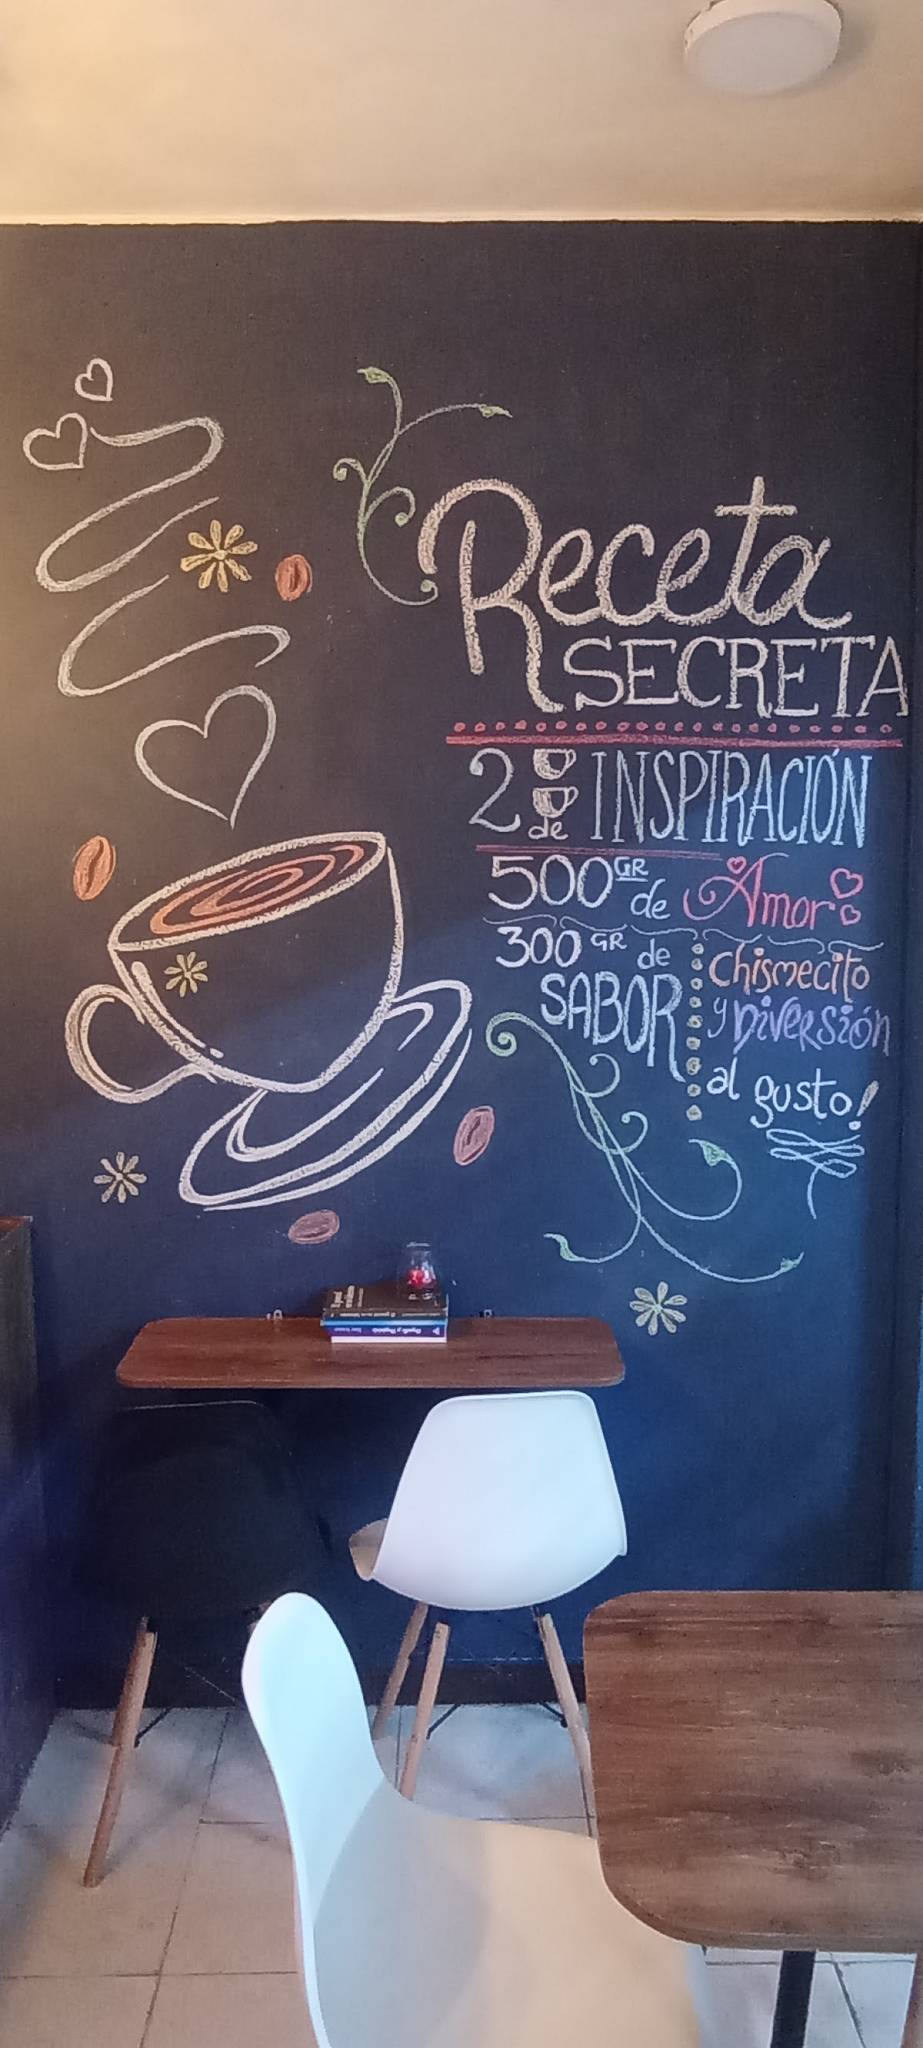 Receta
SECRETA
2 de INSPIRACIÓN
500 GR de Amor
300 GR de
SABOR
Chismecito
y Diversión
al gusto!